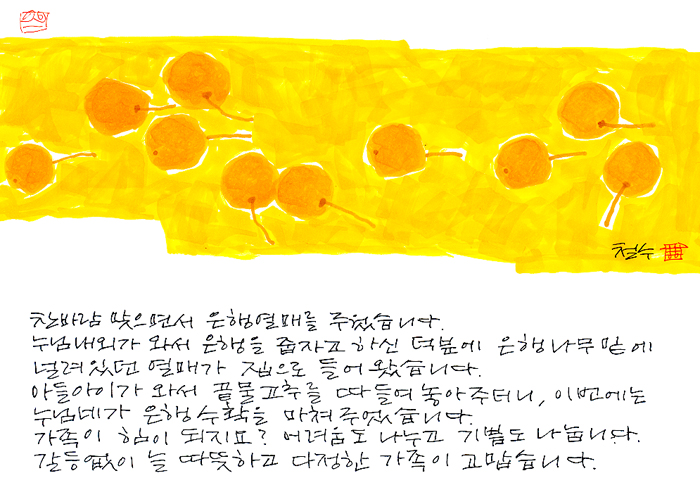 철수
찬바람 맞으면서 은행열매를 주웠습니다.
누님내외가 와서 은행을 줍자고 하신 덕분에 은행나무 밑에
널려있던 열매가 집으로 들어 왔습니다.
아들아이가 와서 끝물고추를 따 들여 놓아주더니, 이번에는
누님네가 은행수확을 마쳐주었습니다.
가족이 힘이 되지요? 어려움도 나누고 기쁨도 나눕니다.
갈등없이 늘 따뜻하고 다정한 가족이 고맙습니다.